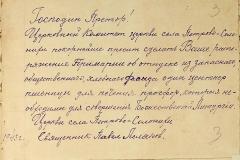 3
Господин Претор!
Церковный Комитет церкви села Петрово-Солонири покорнейше просит сделать Ваше распоряжение Примарии об отпуске из запасного общественного, хлебного фонда один центнер пшеницы для печения просфор, которыя необходимы для совершения Божественной Литургии.
Церкви села Петрово-
Священник Павел
194 г.
3